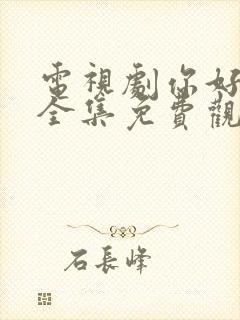 電視劇你好
全集免費觀
石長峰